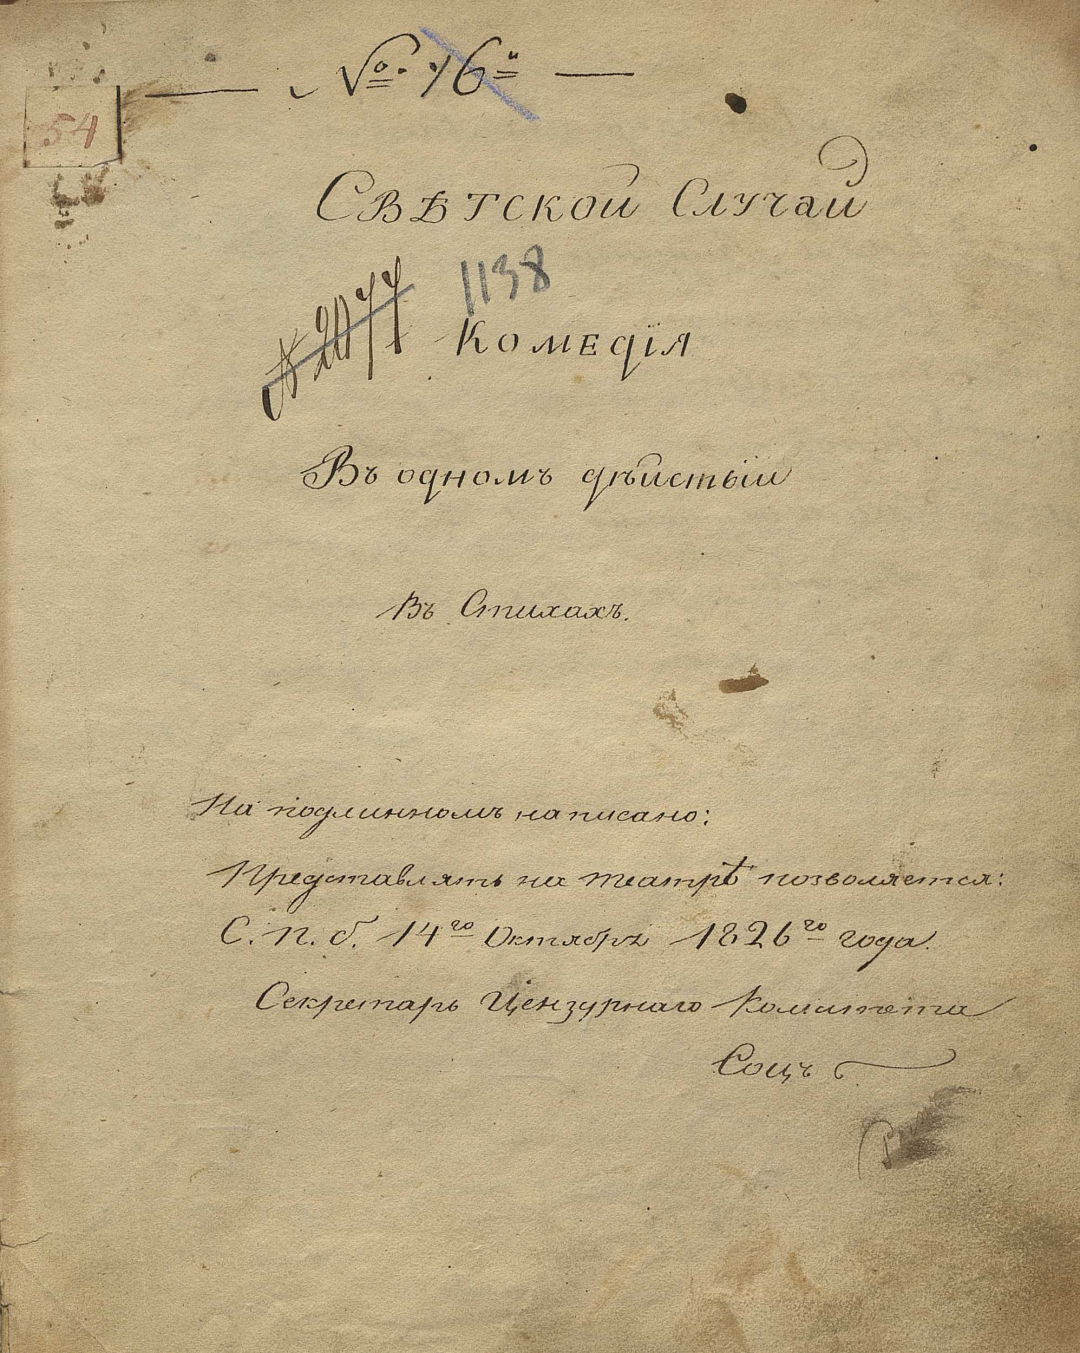 No. 16й
54
Свѣтской Случай
1138
№ 2077
Комедïя
Въ одномъ дѣйстьïи
Въ Стихахъ.
На подлинномъ написано:
Представлять на театрѣ позволяется:
С. п. б. 14го Октября 1826го года.
Секретарь Цензурнаго Комитета
Соцъ